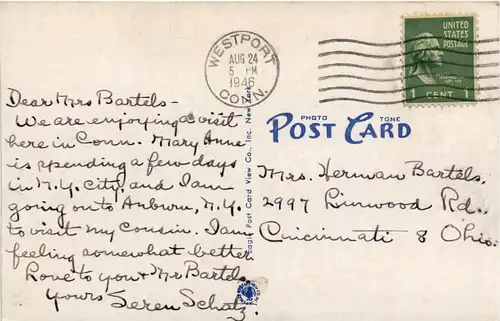 WESTPORT
AUG 24
5 PM
1946
CONN.
UNITED
STATES
POSTAGE
1 CENT 1
Dear Mrs Bartels-
We are enjoying a visit
here in Conn. Mary Anne
is spending a few days
in N.Y. city, and I am
going on to Auburn, N.Y.
to visit my cousin. I am
feeling somewhat better
Love to you & Mr Bartels.
Yours Seren Schatz.
Eagle Post Card View Co., Inc. New York
PHOTO TONE
POST CARD
Mrs. Herman Bartels,
2997 Linwood Rd.,
Cincinnati 8 Ohio.